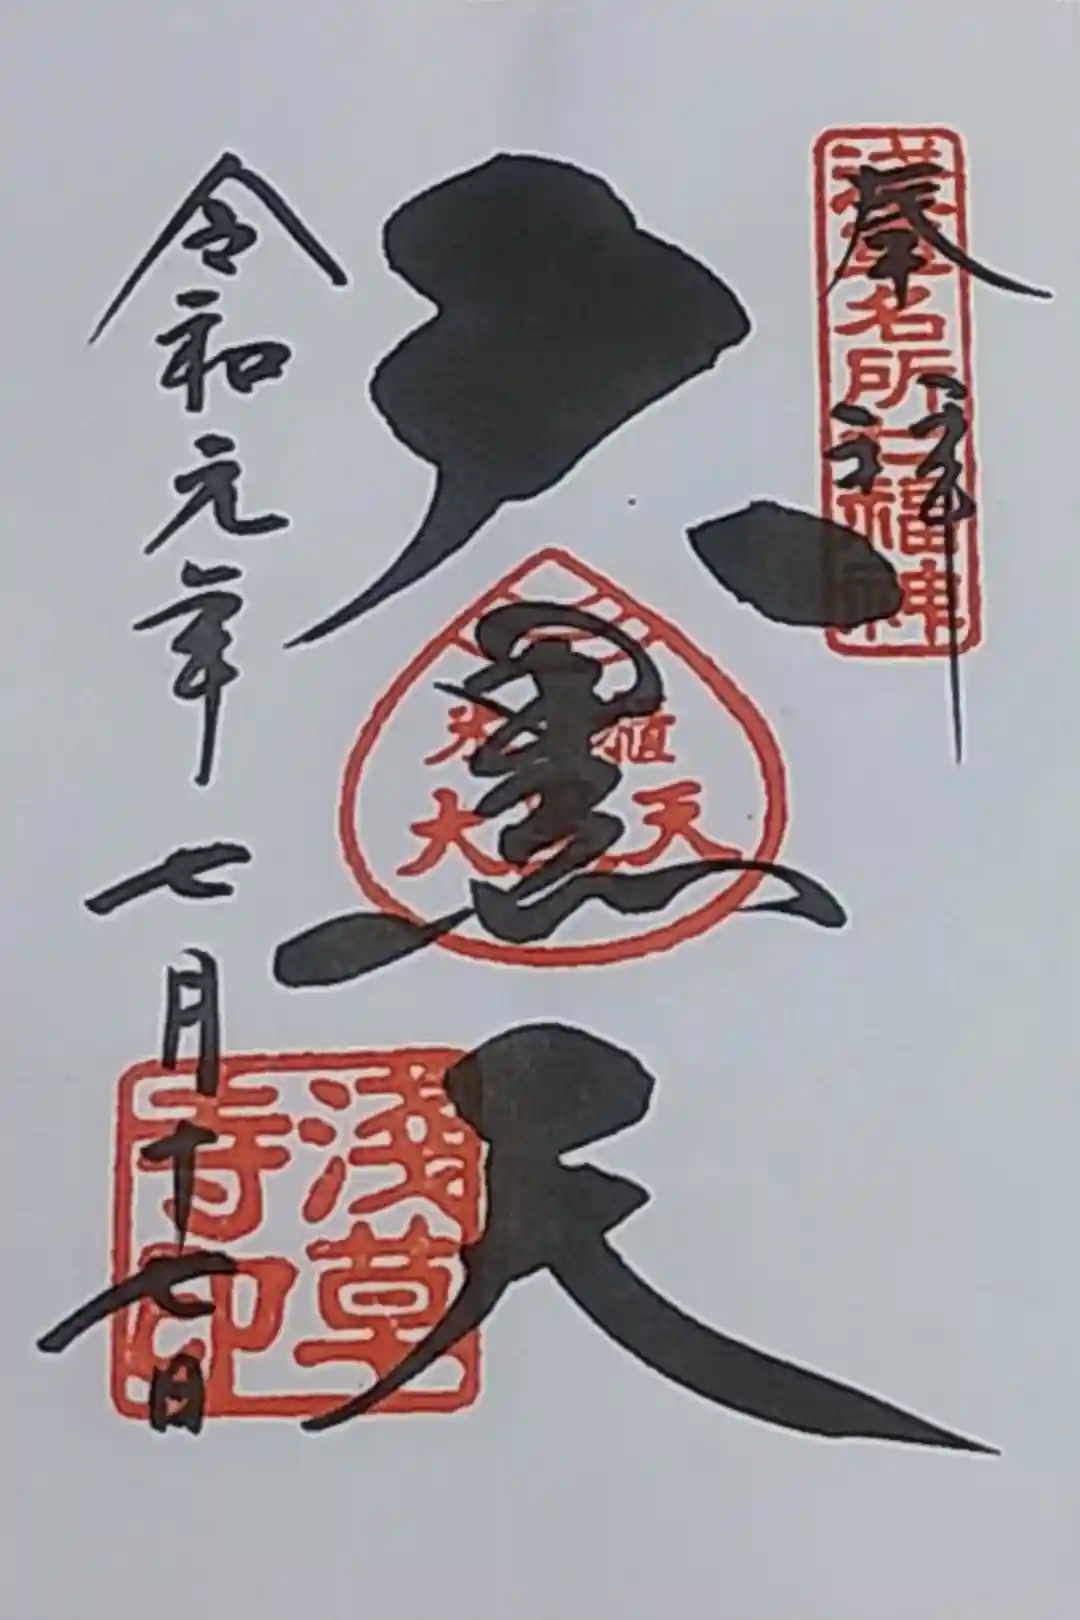 奉拝
浅草名所七福神
大黒天
米櫃
大黒天
令和元年七月十七日
浅草
寺印